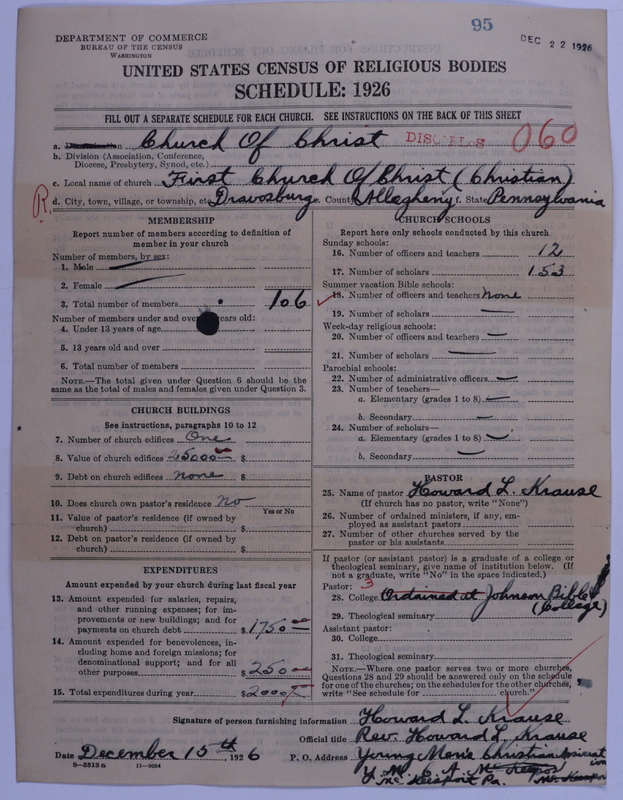 95
DEC 22 1926
DEPARTMENT OF COMMERCE
BUREAU OF THE CENSUS
WASHINGTON
UNITED STATES CENSUS OF RELIGIOUS BODIES
SCHEDULE: 1926
FILL OUT A SEPARATE SCHEDULE FOR EACH CHURCH. SEE INSTRUCTIONS ON THE BACK OF THIS SHEET
a. Denomination Church Of Christ 060
b. Division (Association, Conference,
Diocese, Presbytery, Synod, etc.)
c. Local name of church First Church Of Christ (Christian)
R. d. City, town, village, or township, etc. Dravosburg e. County Allegheny f. State Pennsylvania
MEMBERSHIP
Report number of members according to definition of
member in your church
Number of members, by sex:
1. Male
2. Female
3. Total number of members 106
Number of members under and over years old:
4. Under 13 years of age
5. 13 years old and over
6. Total number of members
NOTE.—The total given under Question 6 should be the
same as the total of males and females given under Question 3.
CHURCH BUILDINGS
See instructions, paragraphs 10 to 12
7. Number of church edifices One
8. Value of church edifices 25000 $
9. Debt on church edifices none $
10. Does church own pastor's residence No
Yes or No
11. Value of pastor's residence (if owned by
church) $
12. Debt on pastor's residence (if owned by
church) $
EXPENDITURES
Amount expended by your church during last fiscal year
13. Amount expended for salaries, repairs,
and other running expenses; for im-
provements or new buildings; and for
payments on church debt $ 1750
14. Amount expended for benevolences, in-
cluding home and foreign missions; for
denominational support; and for all
other purposes $ 250
15. Total expenditures during year $ 2000
CHURCH SCHOOLS
Report here only schools conducted by this church
Sunday schools:
16. Number of officers and teachers 12
17. Number of scholars 153
Summer vacation Bible schools:
18. Number of officers and teachers None
19. Number of scholars
Week-day religious schools:
20. Number of officers and teachers
21. Number of scholars
Parochial schools:
22. Number of administrative officers
23. Number of teachers—
a. Elementary (grades 1 to 8)
b. Secondary
24. Number of scholars—
a. Elementary (grades 1 to 8)
b. Secondary
PASTOR
25. Name of pastor Howard L. Krause
(If church has no pastor, write "None")
26. Number of ordained ministers, if any, em-
ployed as assistant pastors
27. Number of other churches served by the
pastor or his assistants
If pastor (or assistant pastor) is a graduate of a college or
theological seminary, give name of institution below. (If
not a graduate, write "No" in the space indicated.)
Pastor: 3
28. College Ordained at Johnson Bible
(College)
29. Theological seminary
Assistant pastor:
30. College
31. Theological seminary
NOTE.—Where one pastor serves two or more churches,
Questions 28 and 29 should be answered only on the schedule
for one of the churches; on the schedules for the other churches,
write "See schedule for church."
Signature of person furnishing information Howard L. Krause
Official title Rev. Howard L. Krause
Date December 15th, 1926 P. O. Address Young Men's Christian Association
Y. M. C. A.
McKeesport Pa.
8—5513 a 11—9054